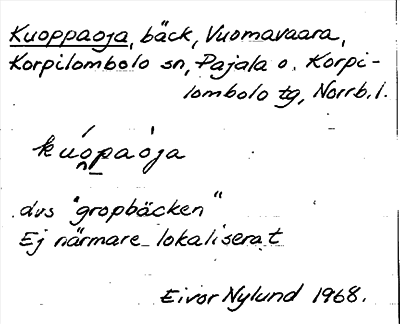 Kuoppaoja, bäck, Vuomavaara,
Korpilombolo sn, Pajala o. Korpi-
lombolo tg, Norrb. l.
kuo̯paòja
dvs "gropbäcken"
Ej närmare lokaliserat
Eivor Nylund 1968.